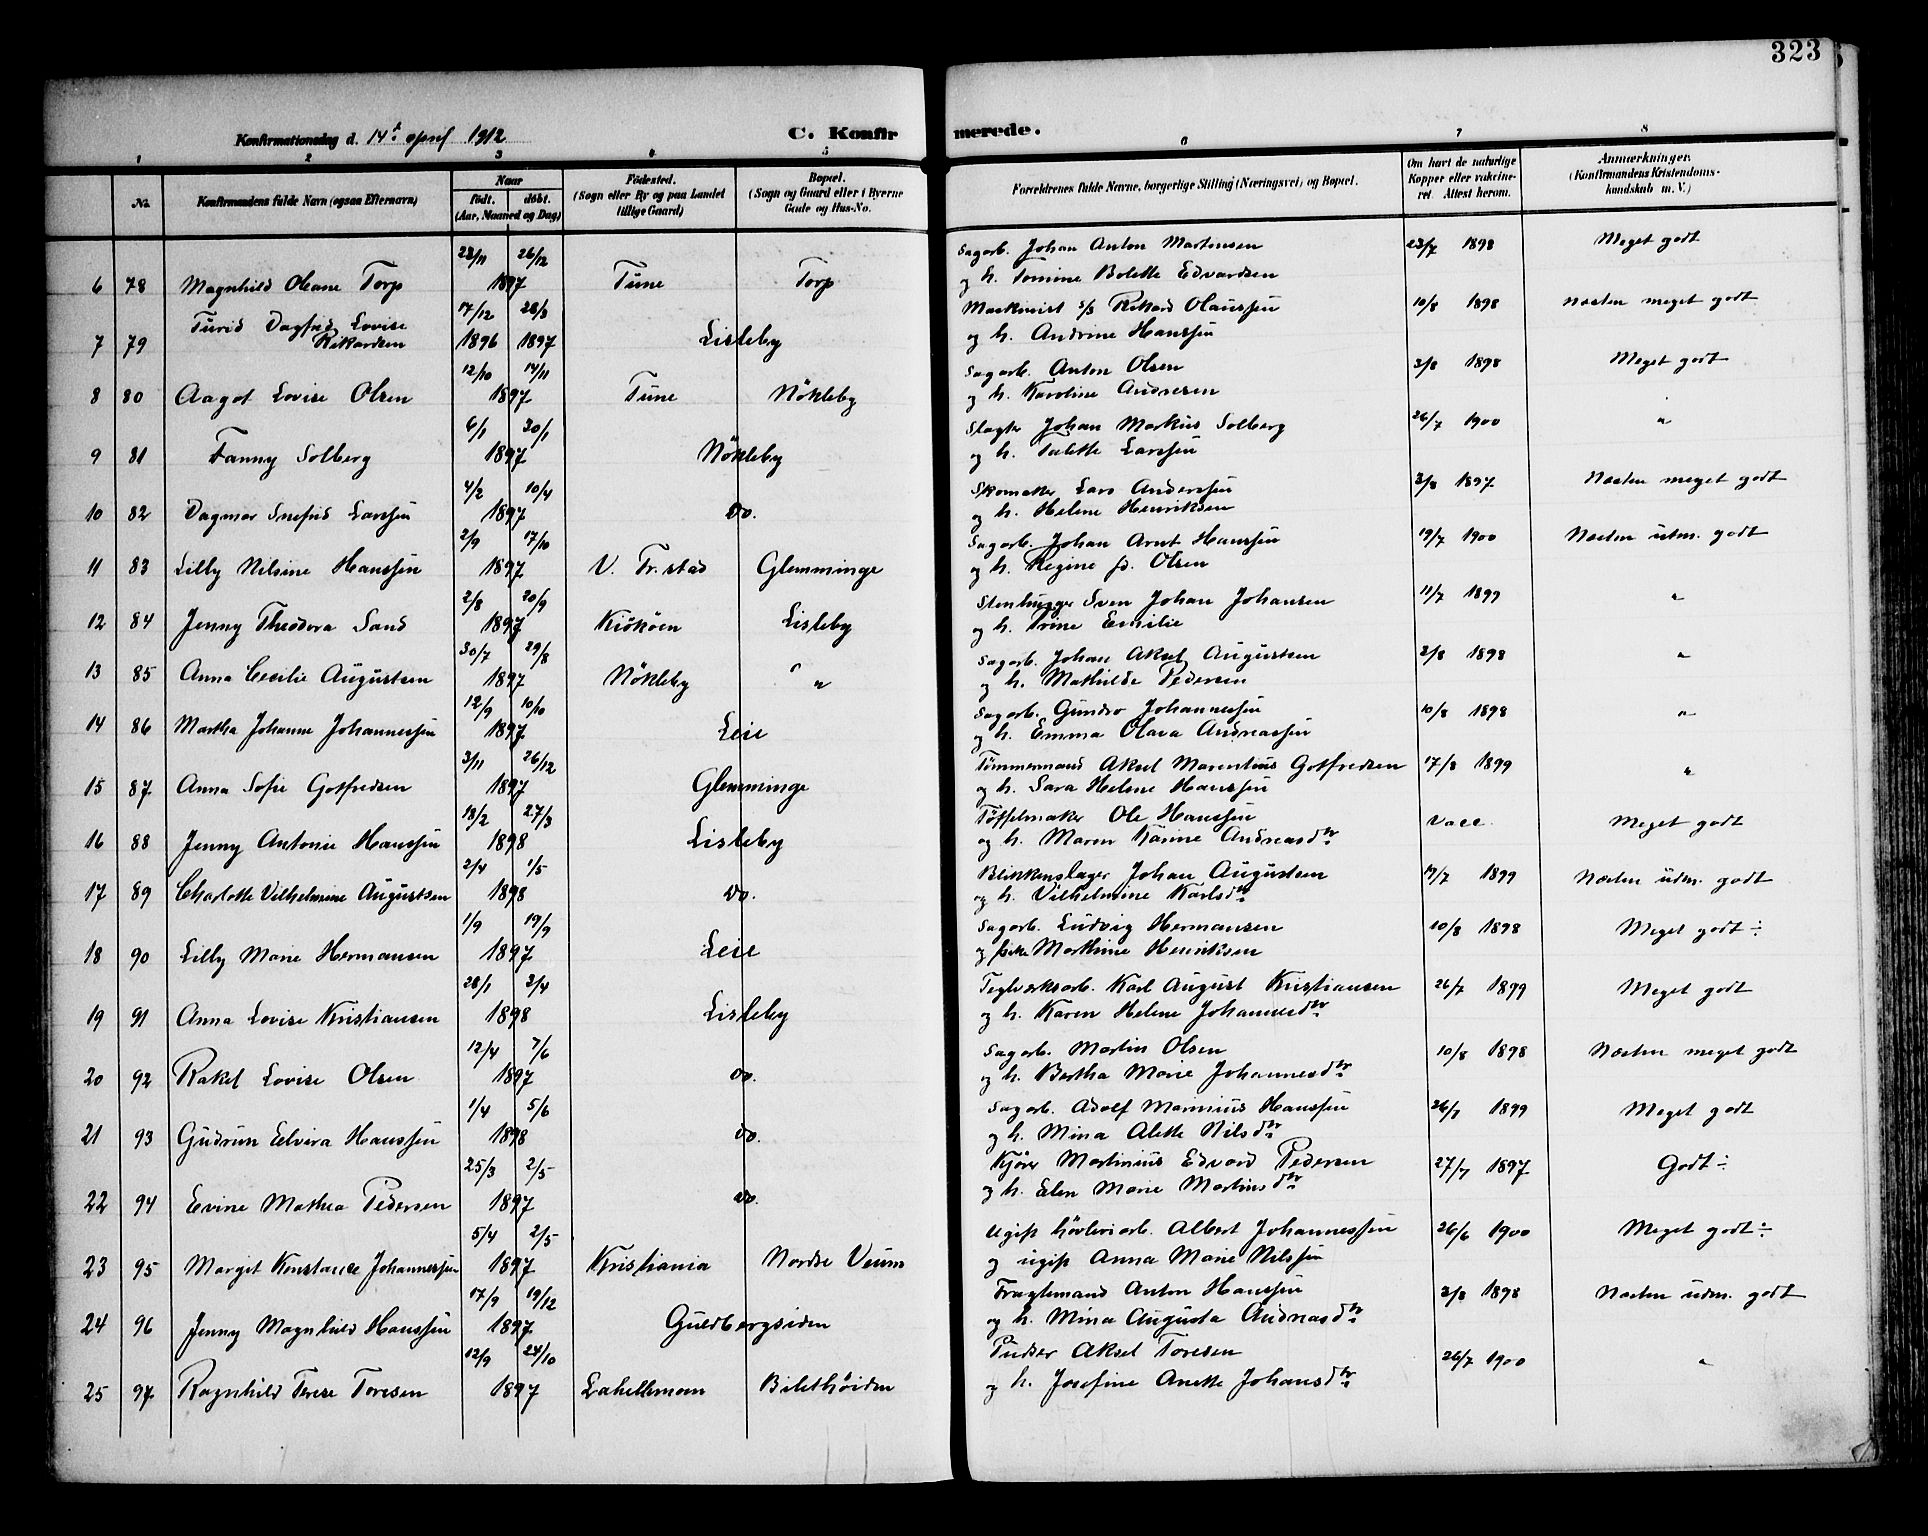 323
Konfirmationsdag d. 14de april 1912
C. Konfirmerede.
1 2 3 4 5 6 7 8
No. Konfirmandens fulde Navn (ogsaa Efternavn) Naar født. døbt. (Aar, Maaned og Dag) Fødested. (Sogn eller By og paa Landet tillige Gaard) Bopæl. (Sogn og Gaard eller i Byerne Gade og Hus-No. Forældrenes fulde Navne, borgerlige Stilling (Næringsvei) og Bopæl. Om havt de naturlige Kopper eller vakcineret. Attest herom. Anmærkninger. (Konfirmandens Kristendomskundskab m. V.)
23/11 26/12 Sagarb. Johan Anton Martinsen 23/7 1898 Meget godt
6 78 Magnhild Oleane Torp 1897 Tune Torp og h. Tomine Bolette Edvardsen
Turid Dagfrid Lovise 17/12 28/3 Maskinist s/s Rikard Olaussen 10/8 1898 Næsten meget godt
7 79 Rikardsen 1896 1897 Lisleby og h. Andrine Hanssen
12/10 14/11 Sagarb. Anton Olsen 3/8 1898 Meget godt
8 80 Aagot Lovise Olsen 1897 Tune Nökleby og h. Karoline Andresen
6/1 30/1 Slagter Johan Markus Solberg 26/7 1900 "
9 81 Fanny Solberg 1897 Nökleby og h. Talette Larssen
4/2 10/4 Skomaker Lars Anderssen 3/8 1897 Næsten meget godt
10 82 Dagmar Snefrid Larssen 1897 do. og h. Helene Henriksen
2/9 17/10 Sagarb. Johan Arnt Hanssen 19/7 1900 Næsten udm. godt
11 83 Lilly Nilsine Hanssen 1897 V. Fr.stad Glemminge og h. Regine fd. Olsen
2/8 20/9 Stenhugger Sven Johan Johansen 11/7 1899 "
12 84 Jenny Theodora Sand 1897 Kiököen Lisleby og h. Trine Emilie
30/7 29/8 Sagarb. Johan Aksel Augustsen 2/8 1898 "
13 85 Anna Cecilie Augustsen 1897 Nökleby " og h. Mathilde Pedersen
12/9 10/10 Sagarb. Gundro Johannessen 10/8 1898 "
14 86 Martha Johanne Johannessen 1897 Leie og h. Emma Olava Andreassen
3/11 26/12 Tømmermand Aksel Marentius Gotfredsen 17/8 1899 "
15 87 Anna Sofie Gotfredsen 1897 Glemminge og h. Sara Helene Hanssen
18/2 27/3 Tøffelmaker Ole Hanssen Vacc. Meget godt
16 88 Jenny Antonie Hanssen 1898 Lisleby og h. Maren Karine Andreasdtr
2/4 1/5 Blikkenslager Johan Augustsen 19/7 1899 Næsten udm. godt
17 89 Charlotte Vilhelmine Augustsen 1898 do. og h. Vilhelmine Karlsdtr
1/9 19/9 Sagarb. Ludvig Hermansen 10/8 1898 Meget godt ÷
18 90 Lilly Marie Hermansen 1897 Leie og Mathine Henriksen
28/1 3/4 Teglverksarb. Karl August Kristiansen 26/7 1899 Meget godt
19 91 Anna Lovise Kristiansen 1898 Lisleby og h. Karen Helene Johannesdtr
12/4 7/6 Sagarb. Martin Olsen 10/8 1898 Næsten meget godt
20 92 Rakel Lovise Olsen 1897 do. og h. Bertha Marie Johannesdtr
1/4 5/6 Sagarb. Adolf Marinius Hanssen 26/7 1899 Meget godt
21 93 Gudrun Elvira Hanssen 1898 do. og h. Mina Alette Nilsdtr
25/3 2/5 Kjörer Martinius Edvard Pedersen 27/7 1897 Godt ÷
22 94 Evine Mathea Pedersen 1897 do. og h. Elen Marie Martinsdtr
5/4 2/5 Ugift hövleriarb. Albert Johannessen 26/6 1900 Meget godt ÷
23 95 Margit Konstance Johannessen 1897 Kristiania Nordre Veum og ugift Anna Marie Nilssen
17/9 19/12 Fragtemand Anton Hanssen 3/8 1898 Næsten udm. godt
24 96 Jenny Magnhild Hanssen 1897 Guldbergsiden og h. Mina Augusta Andreasdtr
12/9 24/10 Pudser Aksel Toresen 26/7 1900 "
25 97 Ragnhild Terese Toresen 1897 Lahellemoen Bilethöiden og h. Josefine Anette Johansdtr